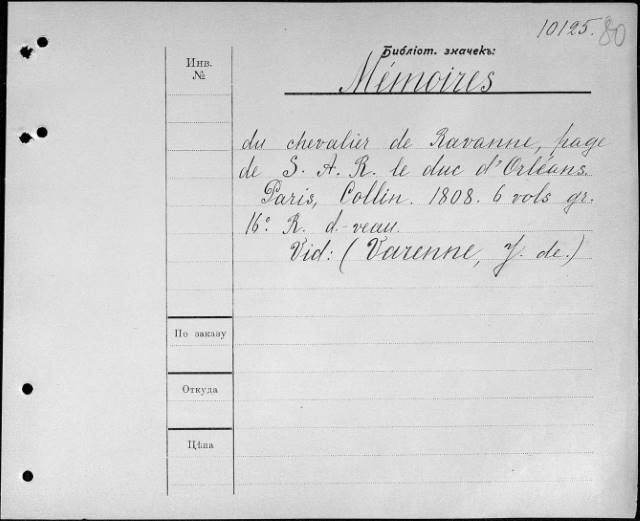 10125. 80
Библіот. значекъ:
Инв.
№
Mémoires
du chevalier de Ravanne, page
de S. A. R. le duc d'Orléans.
Paris, Collin. 1808. 6 vols gr.
16º. R. d-veau.
Vid: (Varenne, J. de.)
По заказу
Откуда
Цѣна